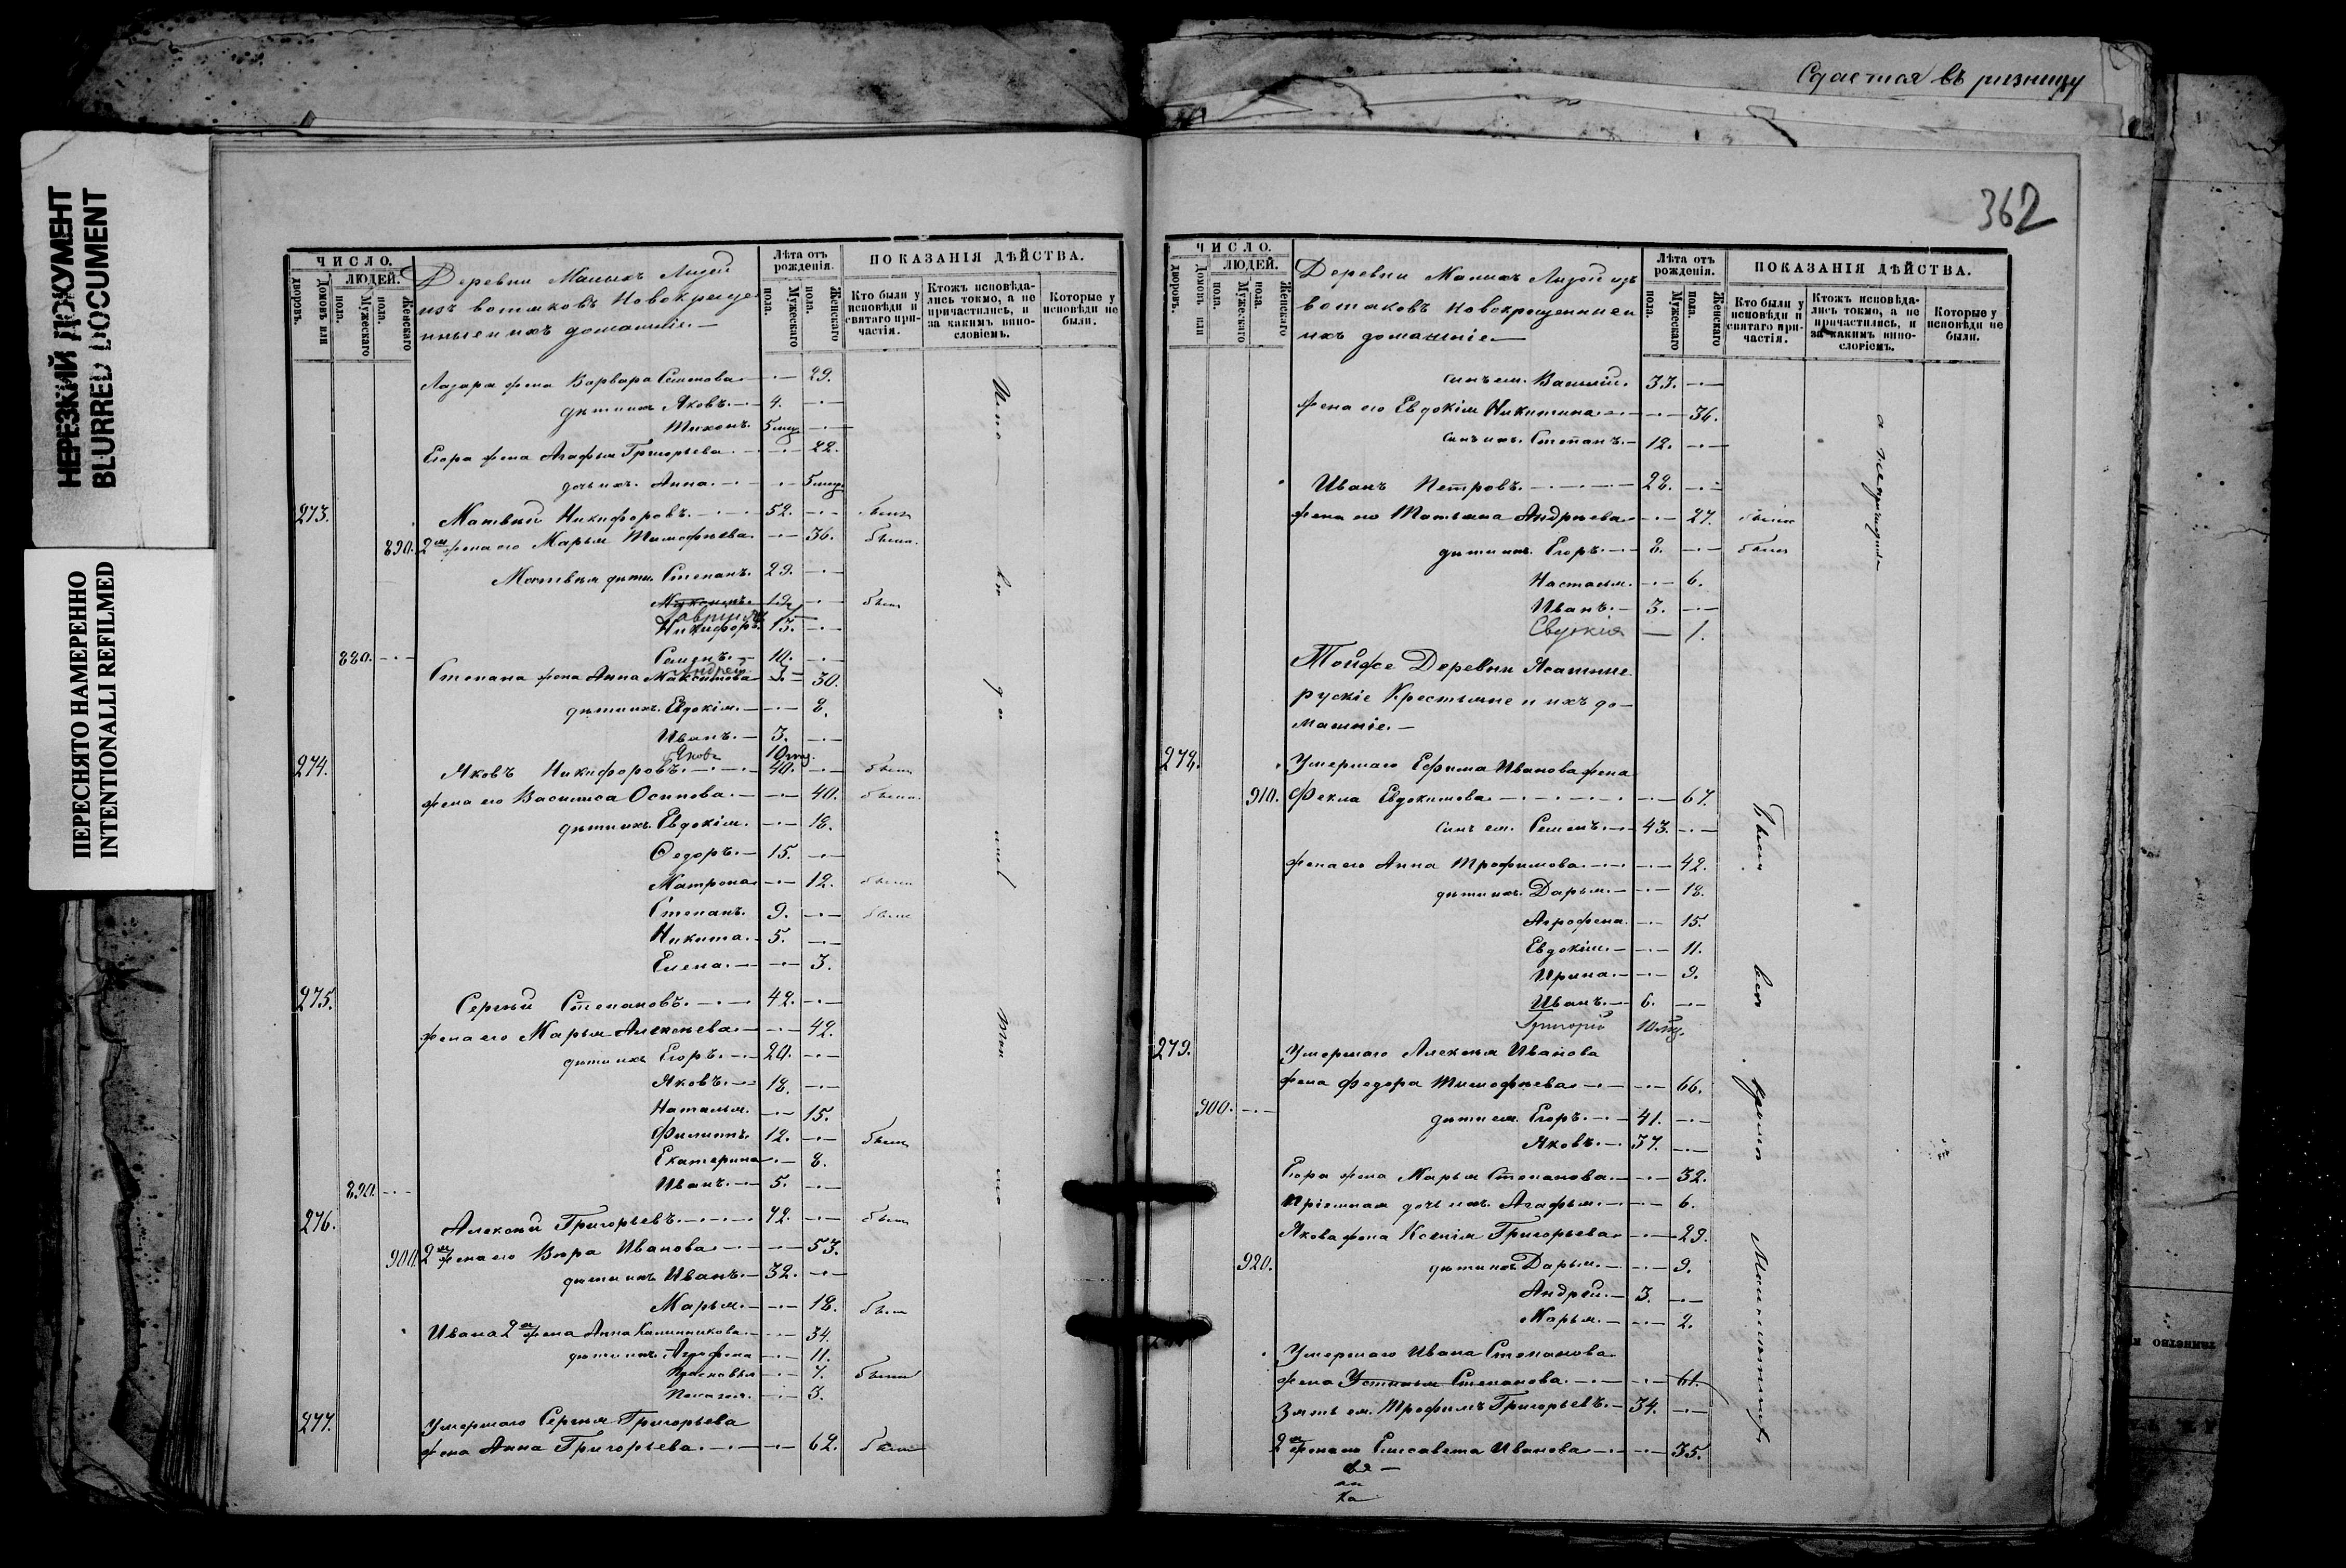 Сдается въ ризницу
362
НЕРЕЗКИЙ ДОКУМЕНТ
BLURRED DOCUMENT
ПЕРЕСНЯТО НАМЕРЕННО
INTENTIONALLI REFILMED
ЧИСЛО.
Домовъ или дворовъ.
ЛЮДЕЙ.
Мужескаго пола.
Женскаго пола.
Деревни Малыхъ Лызей
изъ вотяковъ Новокреще
нные и ихъ домашніе. —
Лѣта отъ рожденія.
Мужескаго пола.
Женскаго пола.
ПОКАЗАНІЯ ДѢЙСТВА.
Кто были у исповѣди и святаго причастія.
Ктожъ исповѣдались токмо, а не причастились, и за какимъ винословіемъ.
Которые у исповѣди не были.
Лазаря жена Варвара Семенова — 29.
дѣти ихъ Яковъ. — 4.
Тихонъ. 5 мѣц.
Егора жена Агафья Григорьева — 22.
дочь ихъ. Анна. — 5 мѣц.
273. Матвей Никифоровъ. — 52. былъ
890. 2я жена его Марья Тимофѣева — 36. была
Матвея дѣти. Степанъ. 29.
19. былъ
Гаврилъ
Никифоръ. 13.
880. Семенъ. — 10.
Андрей
Степана жена Анна Максимова — 30.
дѣти ихъ. Евдокія. — 8.
Иванъ. — 3.
Яковъ 10 мц.
274. Яковъ Никифоровъ. — 40. былъ
жена его Василиса Осипова. — 40. была
дѣти ихъ. Евдокія. — 18.
Ѳедоръ. — 15.
Матрона — 12. была
Степанъ. 9. былъ
Никита. — 5.
Елена. — 3.
275. Сергѣй Степановъ. — 42.
жена его Марья Алексѣева — 42.
дѣти ихъ Егоръ. — 20.
Яковъ. — 18.
Наталья. — 15.
Филиппъ. 12. былъ
Екатерина — 8.
890. Иванъ. — 5.
276. Алексѣй Григорьевъ. — 72. былъ
900. 2я жена его Вѣра Иванова — 53.
дѣти ихъ Иванъ. — 32.
Марья. — 18. была
Ивана 2я жена Анна Калинникова — 34.
дѣти ихъ. Агрофена — 11.
Прасковья — 7. была
Пелагея. — 3.
277. Умершаго Сергѣя Григорьева
жена Анна Григорьева. — 62. была
ЧИСЛО.
Домовъ или дворовъ.
ЛЮДЕЙ.
Мужескаго пола.
Женскаго пола.
Деревни Малыхъ Лызей изъ
вотяковъ новокрещенные и
ихъ домашніе —
Лѣта отъ рожденія.
Мужескаго пола.
Женскаго пола.
ПОКАЗАНІЯ ДѢЙСТВА.
Кто были у исповѣди и святаго причастія.
Ктожъ исповѣдались токмо, а не причастились, и за какимъ винословіемъ.
Которые у исповѣди не были.
сынъ ея. Василій. 33.
жена его Евдокія Никитина — 36.
сынъ ихъ. Степанъ. — 12.
Иванъ Петровъ. — 28.
жена его Татьяна Андрѣева — 27. была
дѣти ихъ. Егоръ. — 8. былъ
Настасья. — 6.
Иванъ. — 3.
Евдокія — 1.
Тойже Деревни Ясашные
рускіе Крестьяне и ихъ до—
машніе. —
278. Умершаго Ефима Иванова жена
910. Фекла Евдокимова — 67.
сынъ ея. Семенъ. — 43.
жена его Анна Трофимова. — 42.
дѣти ихъ. Дарья. — 18.
Агрофена. — 15.
Евдокія. — 11.
Ирина. — 9.
Иванъ. — 6.
Григорій 10 мц.
279. Умершаго Алексѣя Иванова
жена Федора Тимофѣева — 66.
900. дѣти ея. Егоръ. — 41.
Яковъ. — 37.
Егора жена Марья Степанова. — 32.
пріемная дочь ихъ. Агафья. — 6.
Якова жена Ксенія Григорьева — 29.
920. дѣти ихъ Дарья. — 9.
Андрей. — 3.
Марья. — 2.
Умершаго Ивана Степанова
жена Устинья Степанова. — 61.
Зять ея. Трофимъ Григорьевъ. — 34.
2я жена его Елисавета Иванова — 35.
Были вси кромѣ